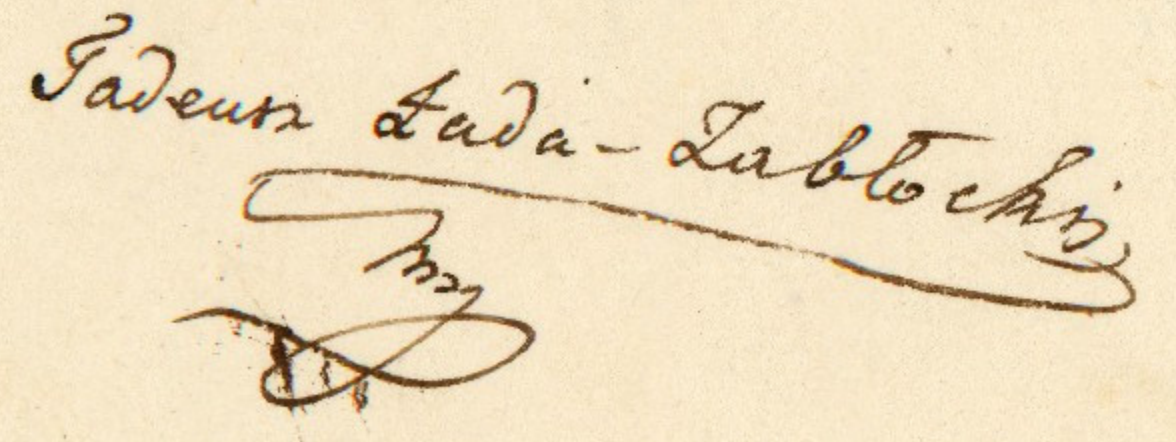 Tadeusz Łada-Zabłocki